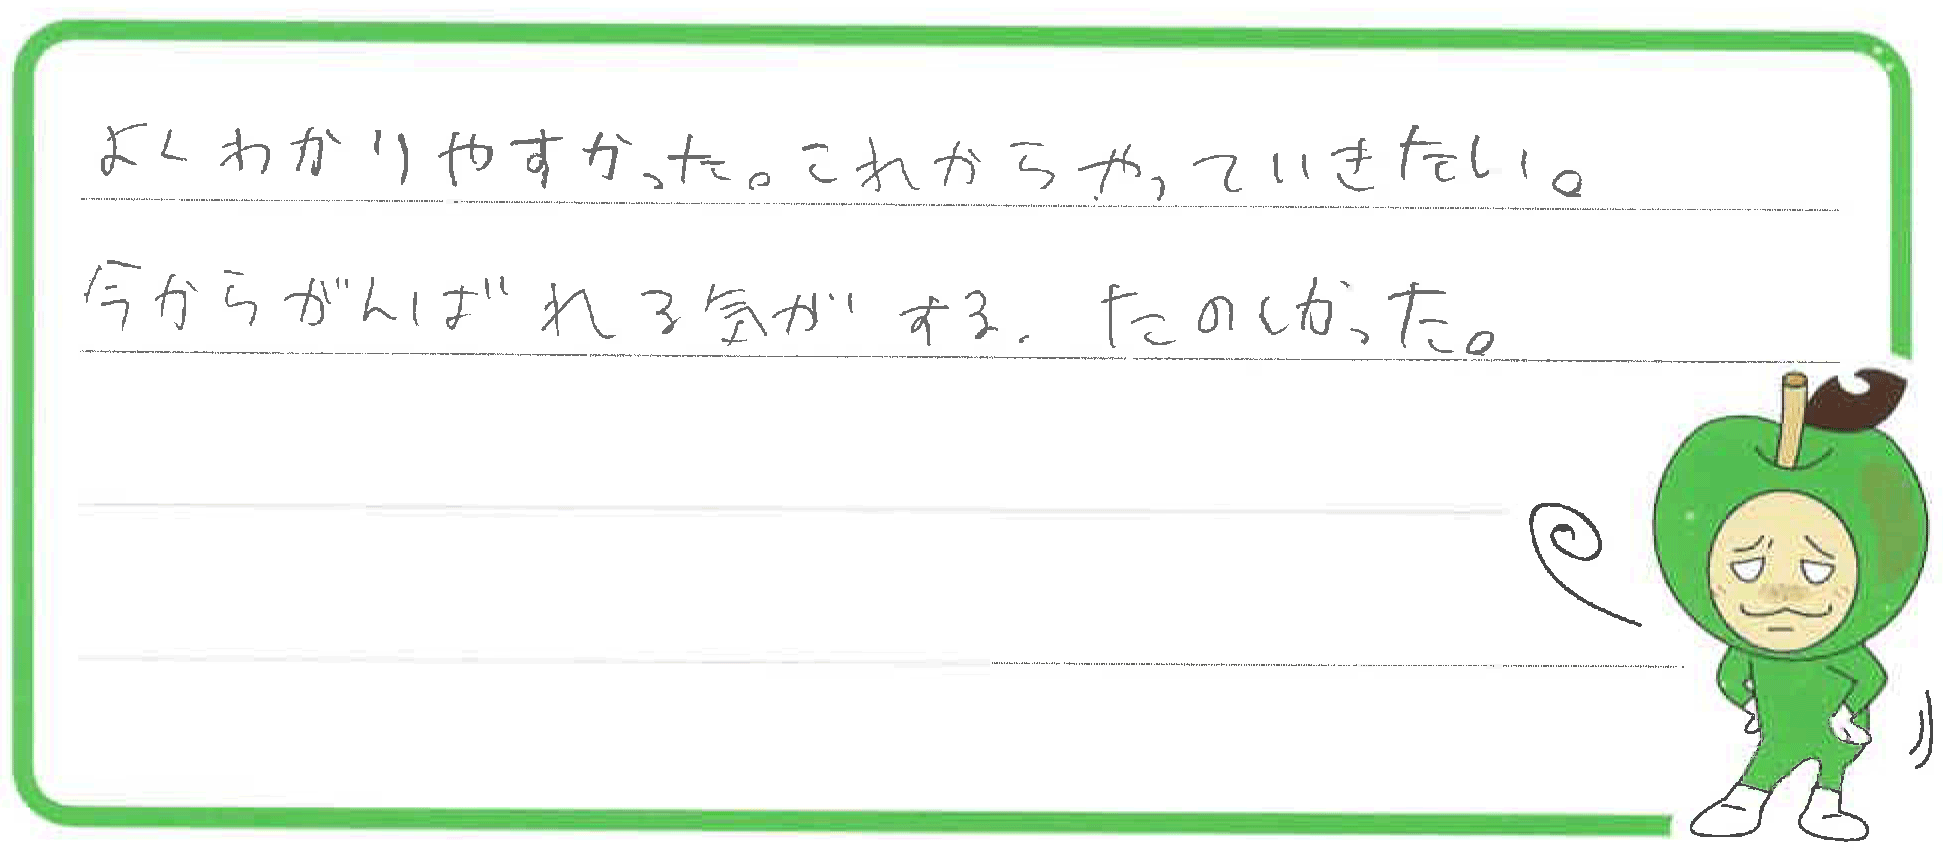 よくわかりやすかった。これからやっていきたい。
今からがんばれる気がする。たのしかった。